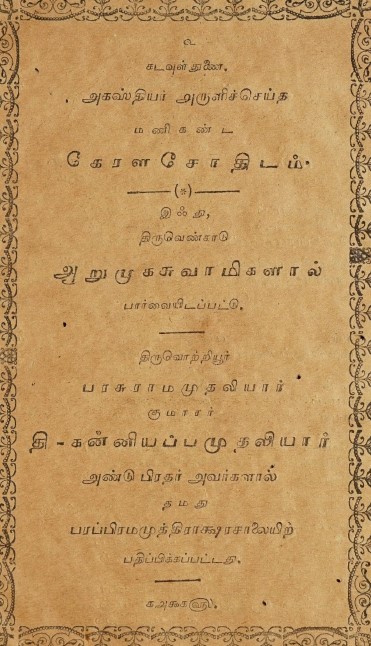 உ
கடவுள் துணை.
அகஸ்தியர் அருளிச்செய்த
மணிகண்ட
கேரளசோதிடம்.
இஃது,
திருவெண்காடு
அறுமுகசுவாமிகளால்
பார்வையிடப்பட்டு.
திருவொற்றியூர்
பரசுராமமுதலியார்
குமாரர்
தி-கன்னியப்பமுதலியார்
அண்டு பிரதர் அவர்களால்
தமது
பரப்பிரமமுத்திராக்ஷரசாலையிற்
பதிப்பிக்கப்பட்டது.